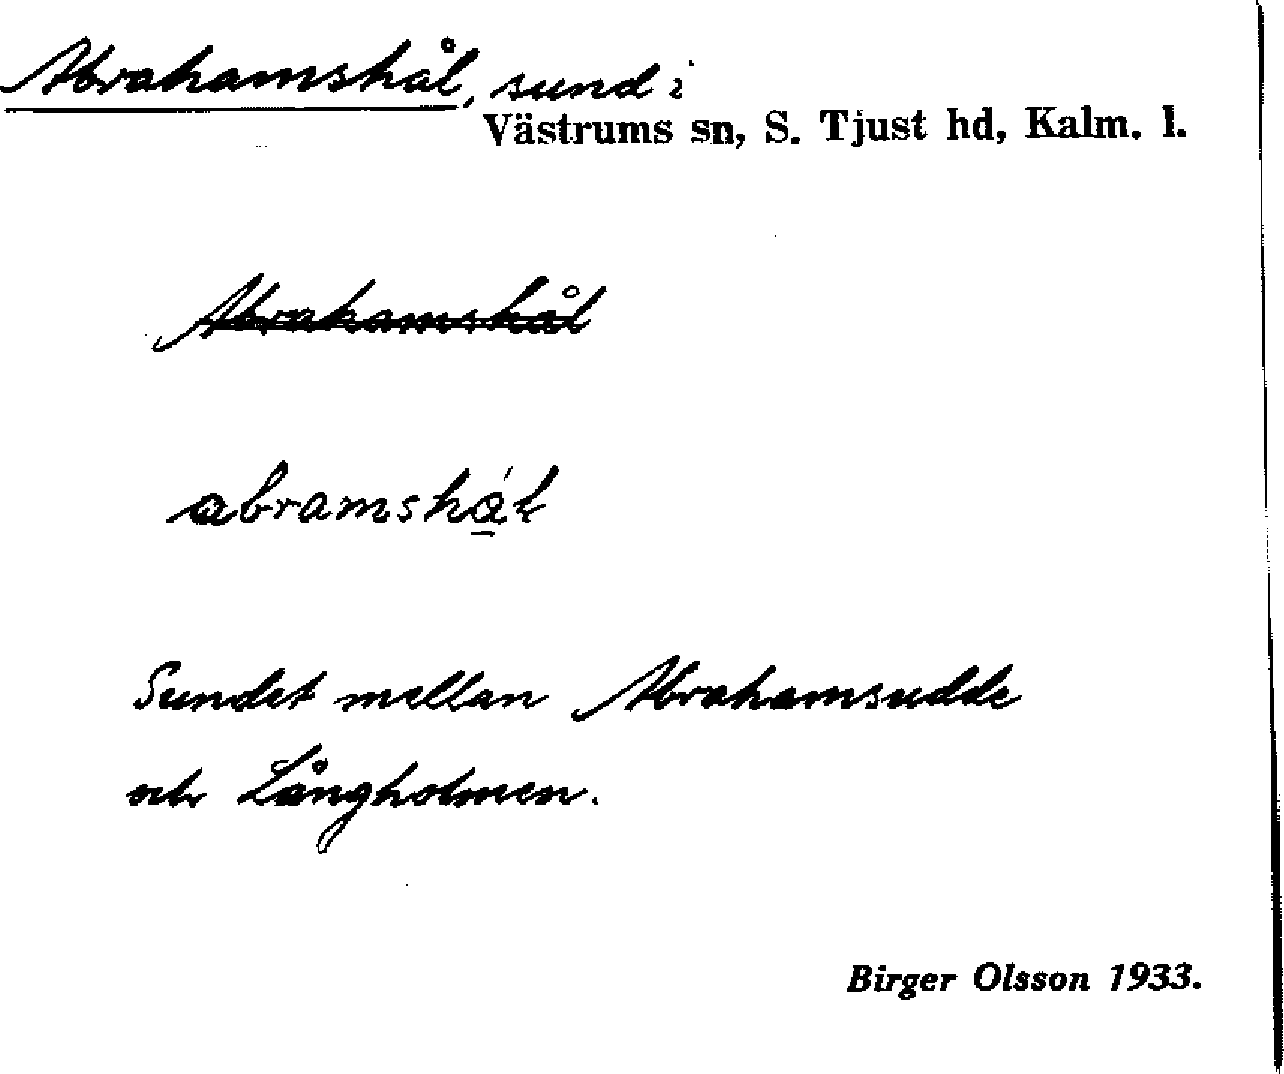 Abrahamshål, sund i
Västrums sn, S. Tjust hd, Kalm. l.
Abrahamshål
abramshål
Sundet mellan Abrahamsudde
och Långholmen.
Birger Olsson 1933.